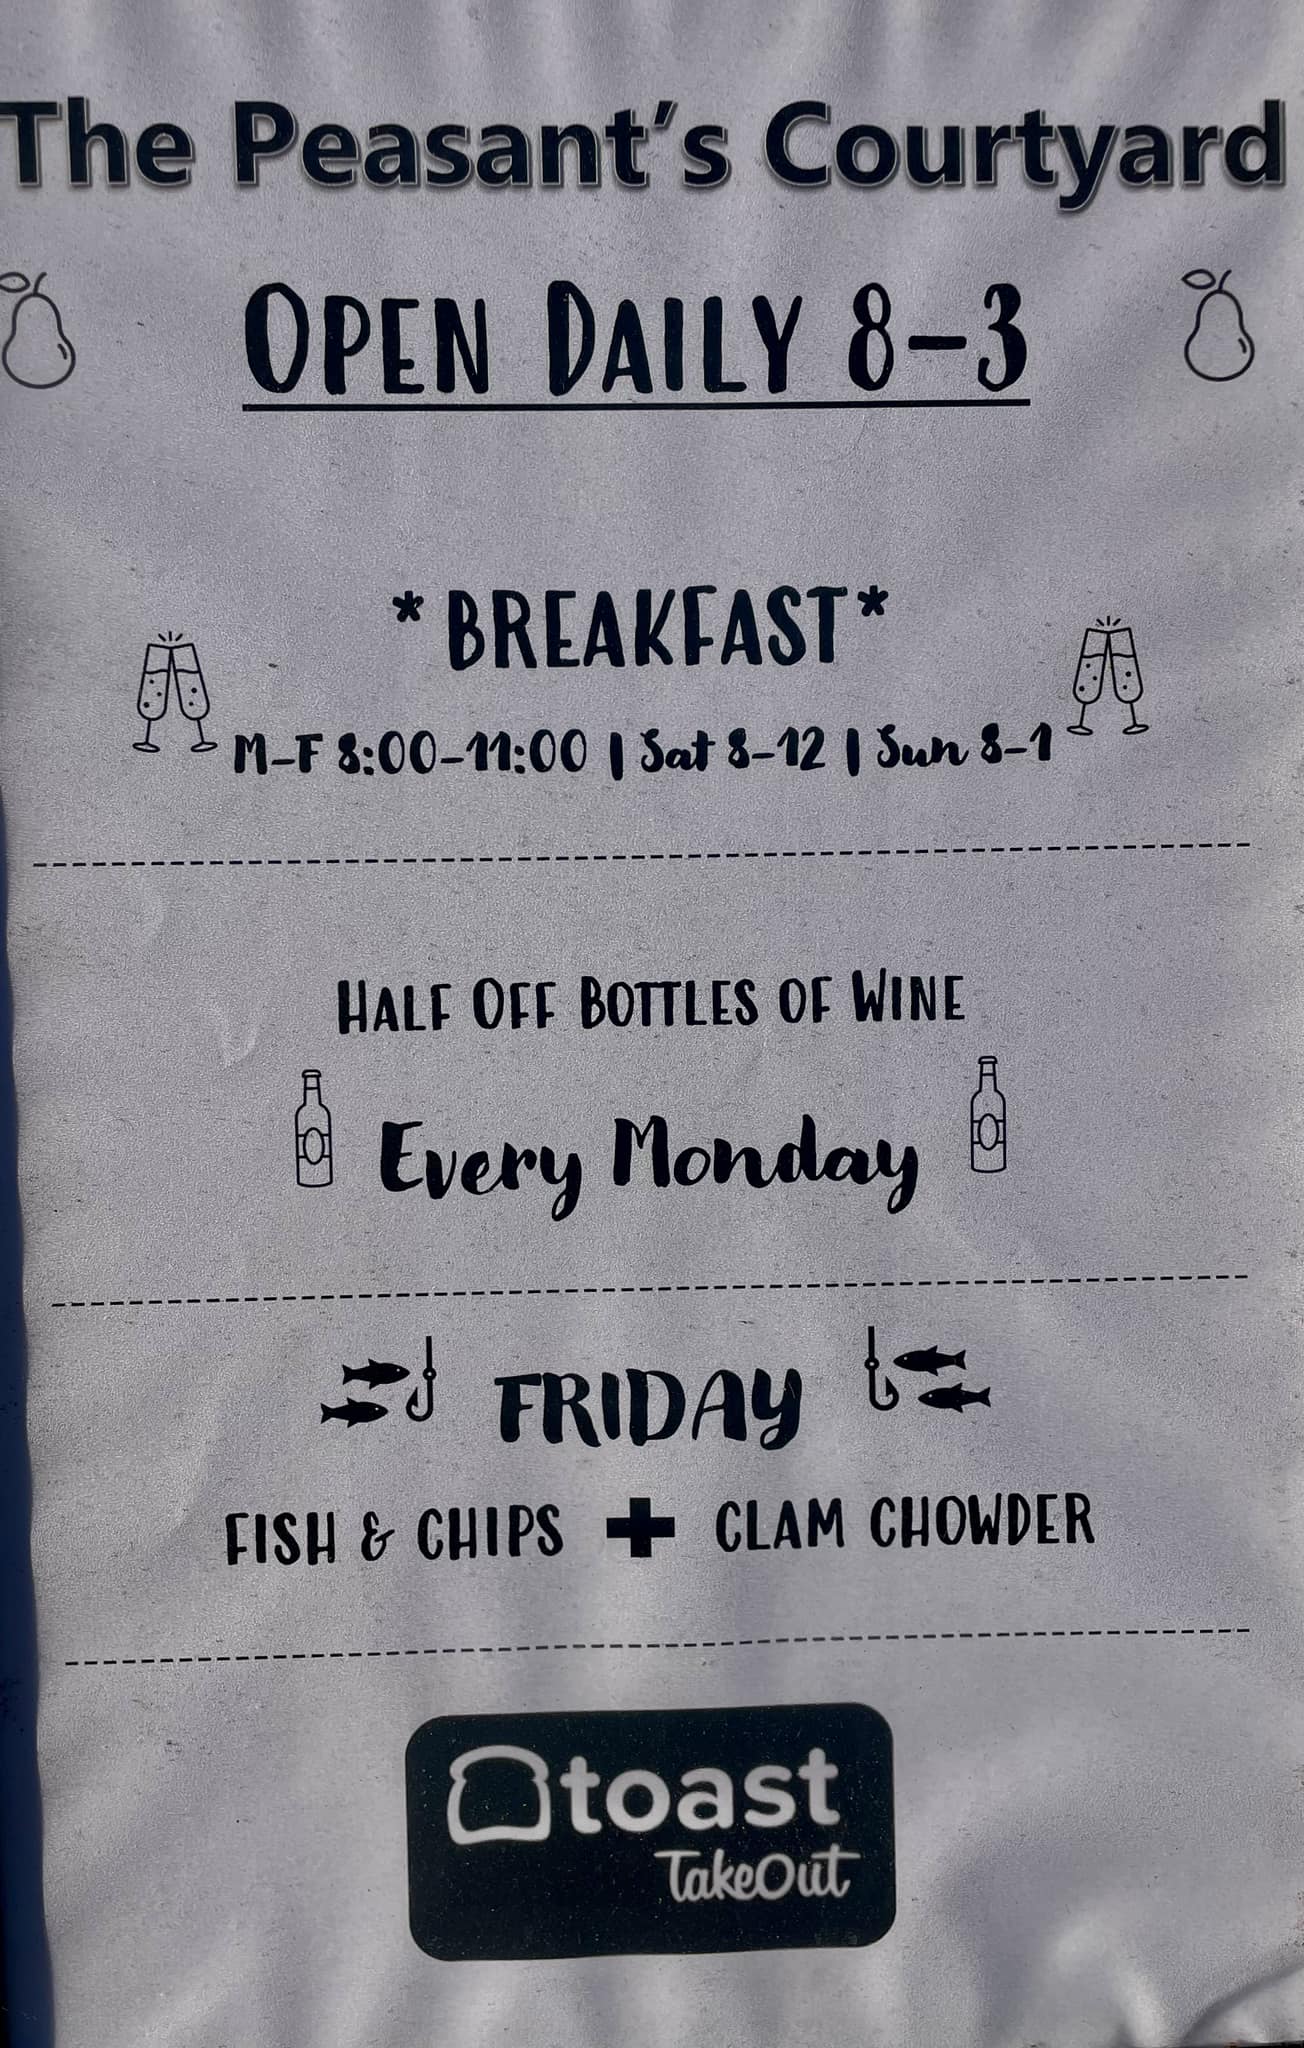 The Peasant's Courtyard
OPEN DAILY 8-3
*BREAKFAST*
M-F 8:00-11:00 | Sat 8-12 | Sun 8-1
HALF OFF BOTTLES OF WINE
Every Monday
FRIDAY
FISH & CHIPS + CLAM CHOWDER
toast
TakeOut